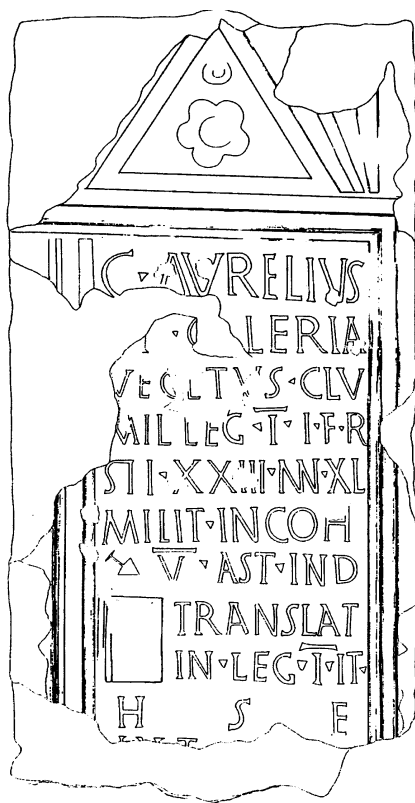 C · AVRELIVS
VEGETVS · CLV
MIL LEG · I̅ · I · F · R
STI · XXIII · NN · XL
MILIT · IN COH
V̅ · AST · IND
TRANSLAT
IN · LEG · I̅ · IT ·
H S E